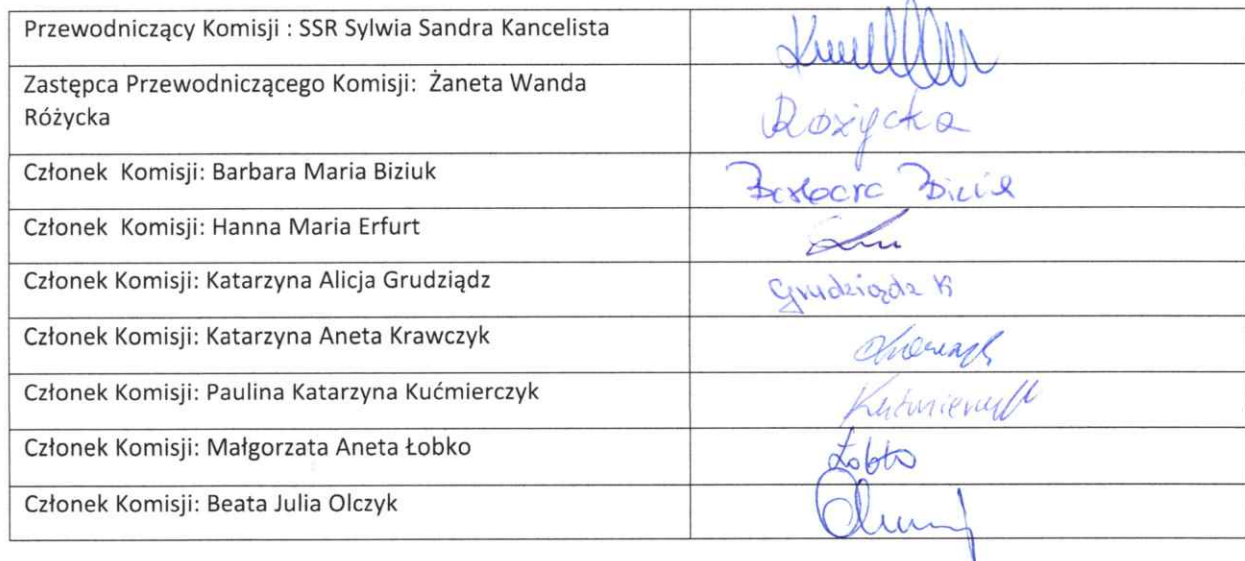 Przewodniczący Komisji : SSR Sylwia Sandra Kancelista
Zastępca Przewodniczącego Komisji: Żaneta Wanda
Różycka
Różycka
Członek Komisji: Barbara Maria Biziuk
Barbara
Członek Komisji: Hanna Maria Erfurt
Członek Komisji: Katarzyna Alicja Grudziądz
Grudziądz K
Członek Komisji: Katarzyna Aneta Krawczyk
Członek Komisji: Paulina Katarzyna Kućmierczyk
Członek Komisji: Małgorzata Aneta Łobko
Łobko
Członek Komisji: Beata Julia Olczyk